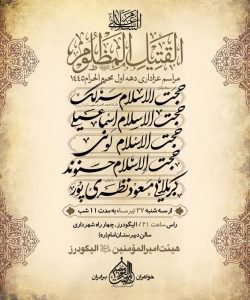 القتیل المظلوم
مراسم عزاداری دهه اول محرم الحرام ۱۴۴۵
حجت الاسلام
حجت الاسلام اسماعیلی
حجت الاسلام
حجت الاسلام حسنوند
کربلایی مسعود نظری پور
از سه شنبه ۲۷ تیر ماه به مدت ۱۱ شب
راس ساعت ۲۱ / الیگودرز، چهار راه شهرداری
سالن دبیرستان امام (ره)
هیئت امیرالمؤمنین الیگودرز
خواهران
برادران